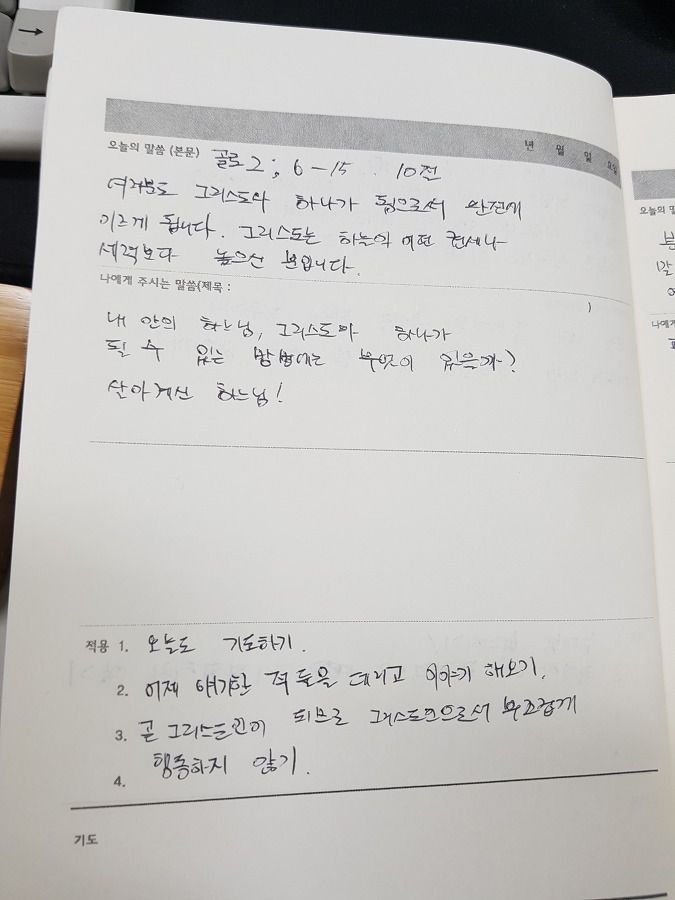 →
년 월 일 요일
오늘의 말씀 (본문) 골로 2 ; 6 - 15 . 10절
여러분도 그리스도와 하나가 됨으로서 완전에
이르게 됩니다. 그리스도는 하늘의 어떤 권세나
세력보다 높으신 분입니다.
나에게 주시는 말씀(제목 : )
내 안의 하느님, 그리스도와 하나가
될 수 있는 방법에는 무엇이 있을까?
살아계신 하느님!
적용 1. 오늘도 기도하기.
2. 어제 얘기한 데리고 이야기 해보기.
3. 곧 그리스도인이 되므로 그리스도인으로서 부조겁게
행동하지 않기.
4.
기도
오늘의 말
나에게